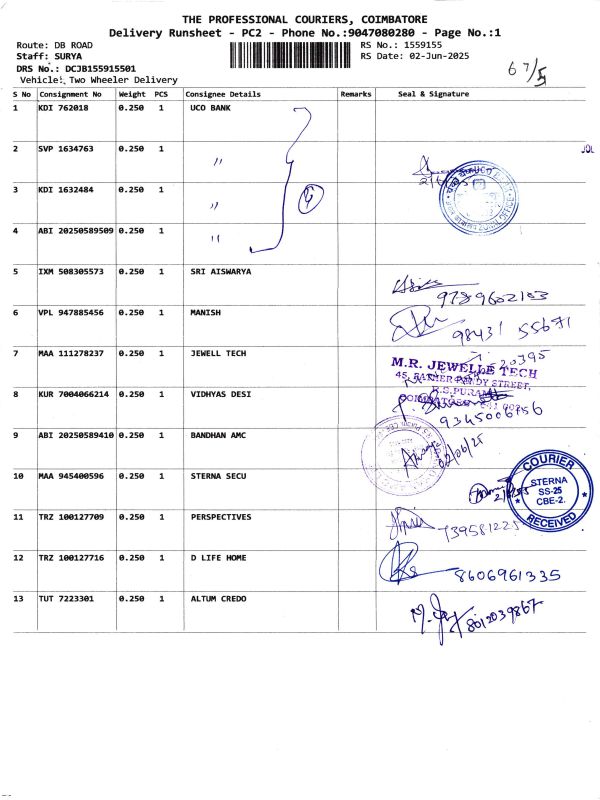 THE PROFESSIONAL COURIERS, COIMBATORE
Delivery Runsheet - PC2 - Phone No.:9047080280 - Page No.:1
Route: DB ROAD RS No.: 1559155
Staff: SURYA RS Date: 02-Jun-2025
DRS No.: DCJB155915501
Vehicle: Two Wheeler Delivery
67/5
S No Consignment No Weight PCS Consignee Details Remarks Seal & Signature
1 KDI 762018 0.250 1 UCO BANK
2 SVP 1634763 0.250 1 "
3 KDI 1632484 0.250 1 " 4
4 ABI 20250589509 0.250 1 "
5 IXM 508305573 0.250 1 SRI AISWARYA
9789602103
6 VPL 947885456 0.250 1 MANISH
98431 55671
7 MAA 111278237 0.250 1 JEWELL TECH
M.R. JEWELLE TECH
8 KUR 7004066214 0.250 1 VIDHYAS DESI
R.S.PURAM
9345006756
9 ABI 20250589410 0.250 1 BANDHAN AMC
02/06/25
10 MAA 945400596 0.250 1 STERNA SECU
COURIER
STERNA
SS-25
CBE-2.
RECEIVED
11 TRZ 100127709 0.250 1 PERSPECTIVES
12 TRZ 100127716 0.250 1 D LIFE HOME
8606961335
13 TUT 7223301 0.250 1 ALTUM CREDO
8012039867